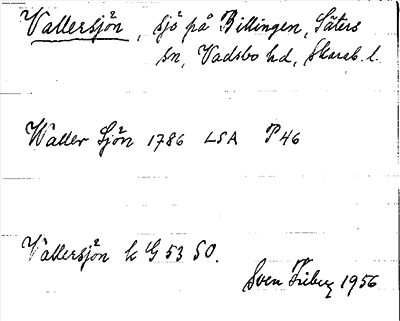 Vallersjön, sjö på Billingen, Säters
sn, Vadsbo hd, Skarab. l.
Waller Sjön 1786 LSA P46
Vallersjön k G 53 SO.
Sven Friberg 1956